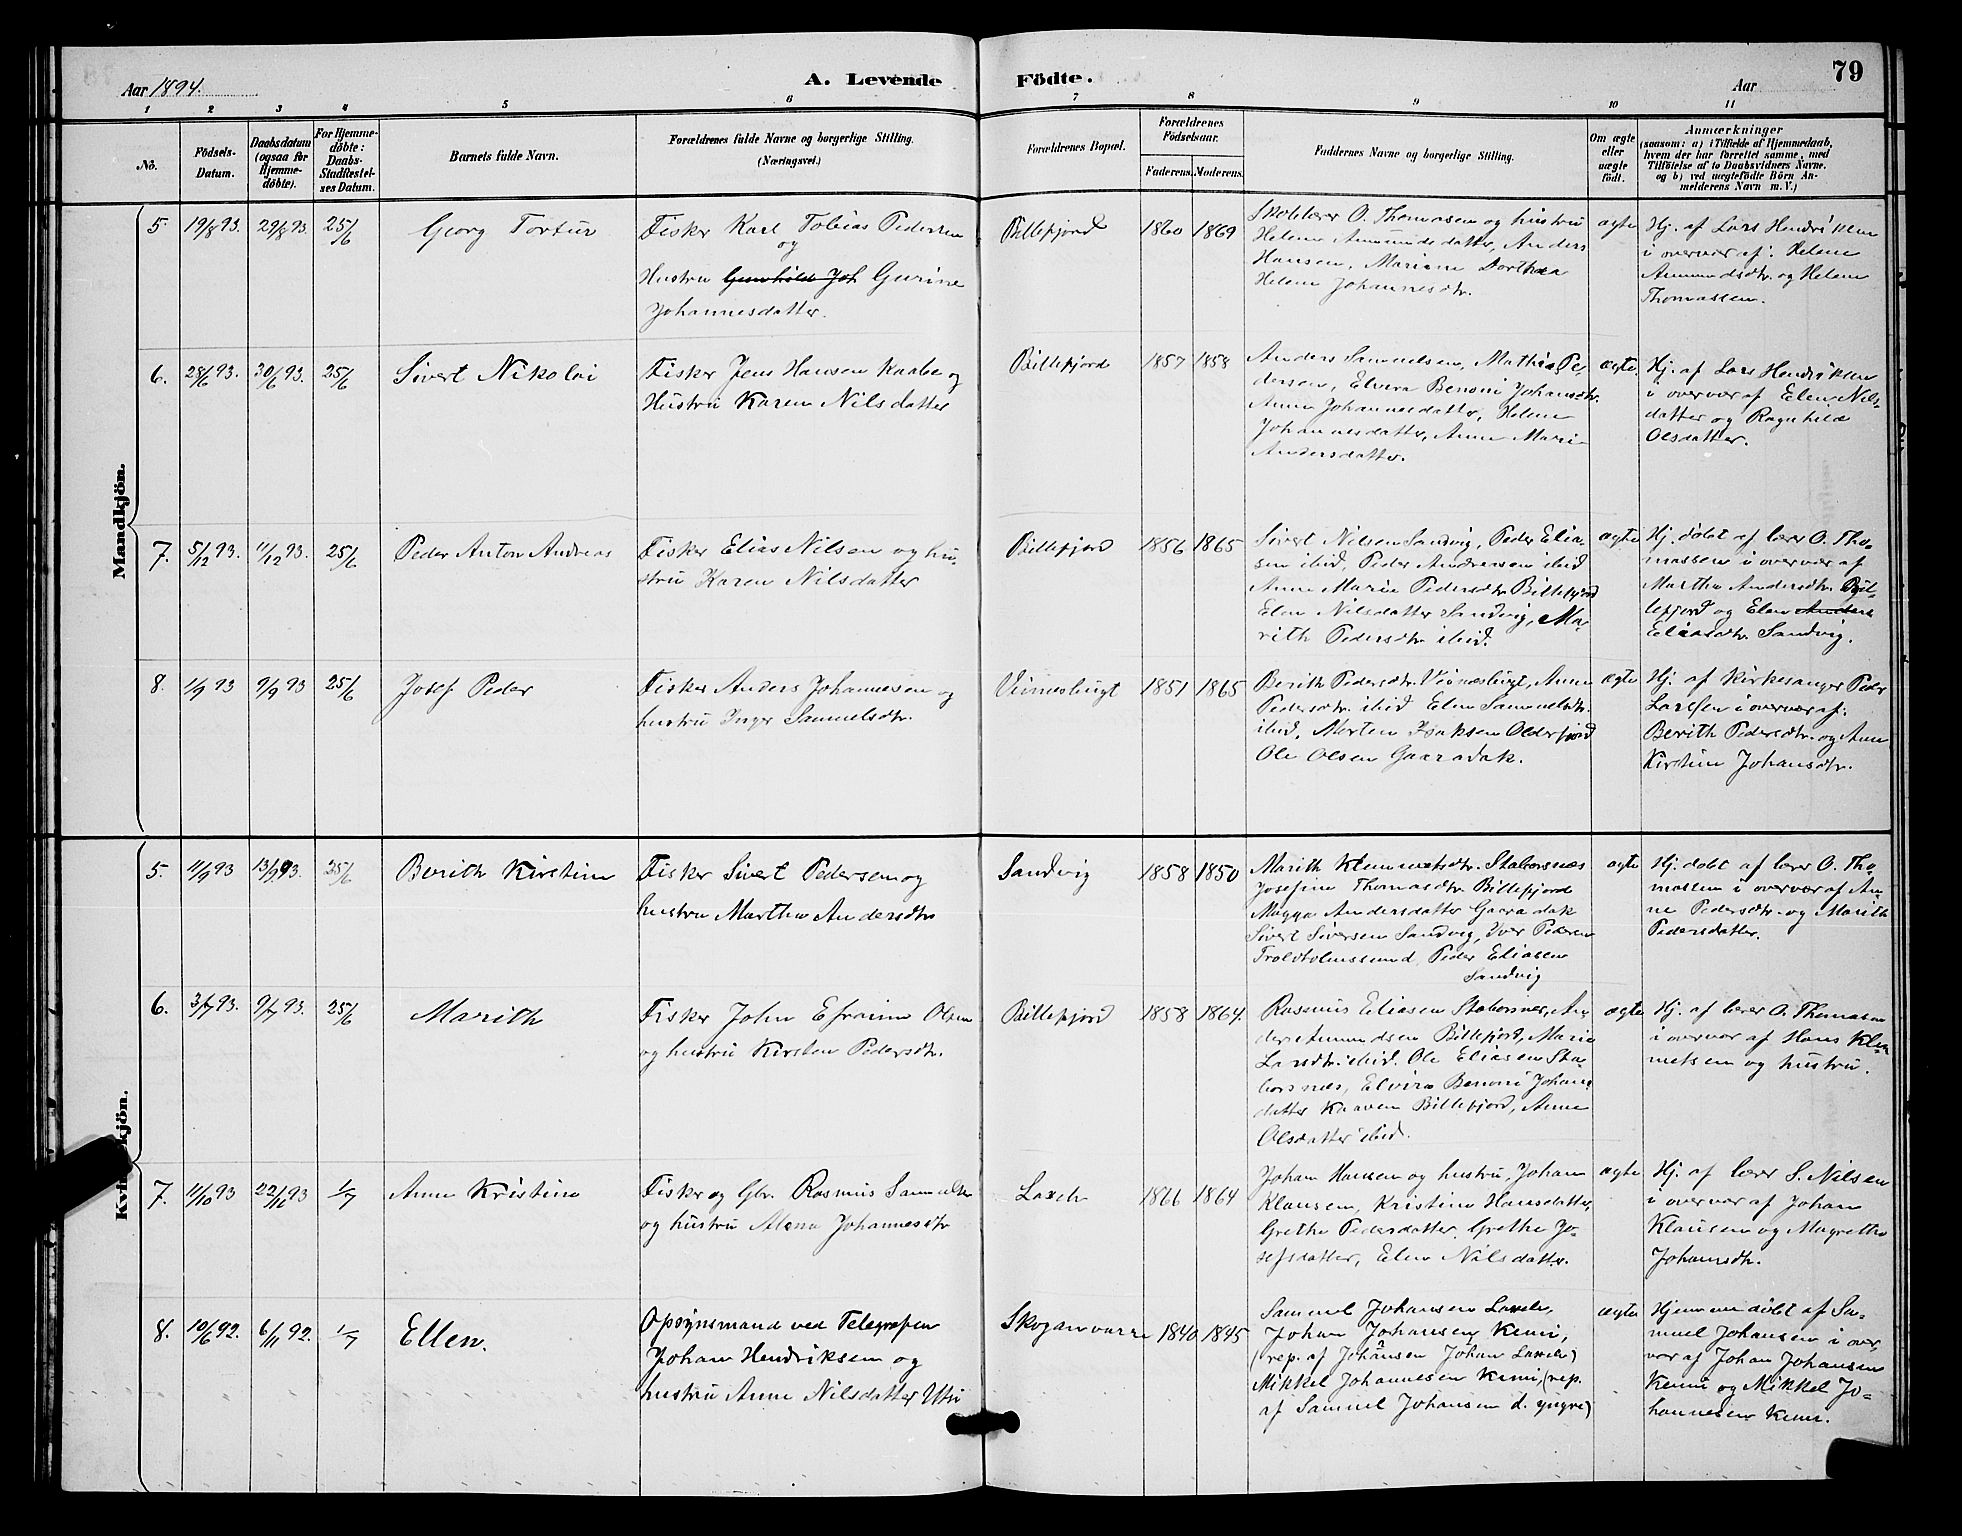 79
Aar 1894.
A. Levende
Födte.
Aar
1 2 3 4 5 6 7 8 9 10 11
No.
Födsels-
Datum.
Daabsdatum
(ogsaa for
Hjemme-
döbte).
For Hjemme-
döbte:
Daabs-
Stadfæstel-
ses Datum.
Barnets fulde Navn.
Forældrenes fulde Navne og borgerlige Stilling.
(Næringsvei.)
Forældrenes Bopæl.
Forældrenes
Födselsaar.
Faderens.
Moderens.
Faddernes Navne og borgerlige Stilling.
Om ægte
eller
uægte
födt.
Anmærkninger
(saasom: a) i Tilfælde af Hjemmedaab,
hvem der har forrettet samme, med
Tilföielse af to Daabsvidners Navne.
og b) ved uægtefödte Börn An-
melderens Navn m. V.)
Mandkjön.
5. 19/8 93. 29/8 93. 25/6
Georg Tortur
Fisker Karl Tobias Pedersen
og
Hustru Gunhild Joh Gurine
Johannesdatter.
Billefjord 1860 1869
Skolelærer O. Thomassen og hustru
Helene Amundsdatter, Anders
Hansen, Mariane Dorthea
Helene Johannesdtr.
ægte
Hj. af Lars Hendriksen
i overvær af: Helene
Amundsdtr. og Helene
Thomassen.
6. 28/6 93. 30/6 93. 25/6
Sivert Nikolai
Fisker Jens Hansen Kaabe og
Hustru Karen Nilsdatter
Billefjord 1857 1858
Anders Samuelsen, Mathis Pe-
dersen, Elvira Benoni Johansdtr.
Anne Johannesdatter, Helene
Johannesdatter, Anne Marie
Andersdatter.
ægte.
Hj. af Lars Hendriksen
i overvær af Elen Nils-
datter og Ragnhild
Olsdatter.
7. 5/12 93. 11/12 93. 25/6
Peder Anton Andreas
Fisker Elias Nilsen og hu-
stru Karen Nilsdatter
Billefjord 1856 1865
Sivert Nilsen Sandvig, Peder Elia-
sen ibid, Peder Andreasen ibid
Anne Marie Pedersdtr Billefjord
Elen Nilsdatter Sandvig, Ma-
rith Pedersdtr ibid.
ægte
Hj. döbt af lærer O. Tho-
massen i overvær af
Martha Andersdtr. Bil-
lefjord og Elen Anders
Eliasdtr. Sandvig.
8. 1/9 93 9/9 93 25/6
Josef Peder
Fisker Anders Johannesen og
hustru Inger Samuelsdtr.
Vinnesbugt 1851 1865
Berith Pedersdtr. Viinæsbugt, Anne
Pedersdtr. ibid Elen Samuelsdtr.
ibid, Morten Isaksen Olderfjord
Ole Olsen Gaaradak.
ægte
Hj. af Kirkesanger Peder
Larsen i overvær af:
Berith Pedersdtr. og Anne
Kirstine Johansdtr.
Kvindekjön.
5. 11/9 93 13/9 93. 25/6
Berith Kirstine
Fisker Sivert Pedersen og
hustru Martha Andersdtr
Sandvig 1858 1850
Marith Klemmetsdtr. Staborsnæs
Josefine Thomasdtr. Billefjord
Magga Andersdatter Gaaradak
Sivert Siversen Sandvig, Iver Pedersen
Troldholmssund, Peder Eliasen
Sandvig
ægte
Hj. döbt af lærer O. Tho-
massen i overvær af An-
ne Pedersdtr. og Marith
Pedersdatter.
6. 3/7 93. 9/7 93. 25/6
Marith
Fisker John Efraim Olsen
og hustru Kirsten Pedersdtr.
Billefjord 1858 1864.
Rasmus Eliasen Stabornes, An-
ders Amundsen Billefjord, Marie
Larsdtr. ibid. Ole Eliasen Sta-
borsnæs, Elvira Benoni Johans-
datter Kaaven Billefjord, Anne
Olsdatter ibid.
ægte
Hj. af lærer O. Thomassen
i overvær af Hans Klem-
metsen og hustru.
7. 11/10 93 22/12 93 1/7
Anne Kristine
Fisker og Gbr. Rasmus Samuelsen
og hustru Alena Johannesdtr
Laxelv 1866 1864
Johan Hansen og hustru, Johan
Klausen, Kristine Hansdatter,
Grethe Pedersdatter, Grethe Jo-
sefsdatter, Elen Nilsdatter.
ægte
Hj. af lærer S. Nilsen
i overvær af Johan
Klausen og Magrethe
Johansdtr.
8. 10/6 92. 6/11 92. 1/7
Ellen.
Opsynsmand ved Telegrafen
Johan Hendriksen og
hustru Anne Nilsdatter Utsi
Skoganvarre 1840 1845
Samuel Johansen Laxelv,
Johan Johansen Kemi,
(rep. af Johansen Johan Laxelv)
Mikkel Johannesen Kemi, (rep.
af Samuel Johansen d. yngre)
ægte
Hjemmedöbt af Sa-
muel Johansen i over
vær af Johan Johansen
Kemi og Mikkel Jo-
hannesen Kemi.